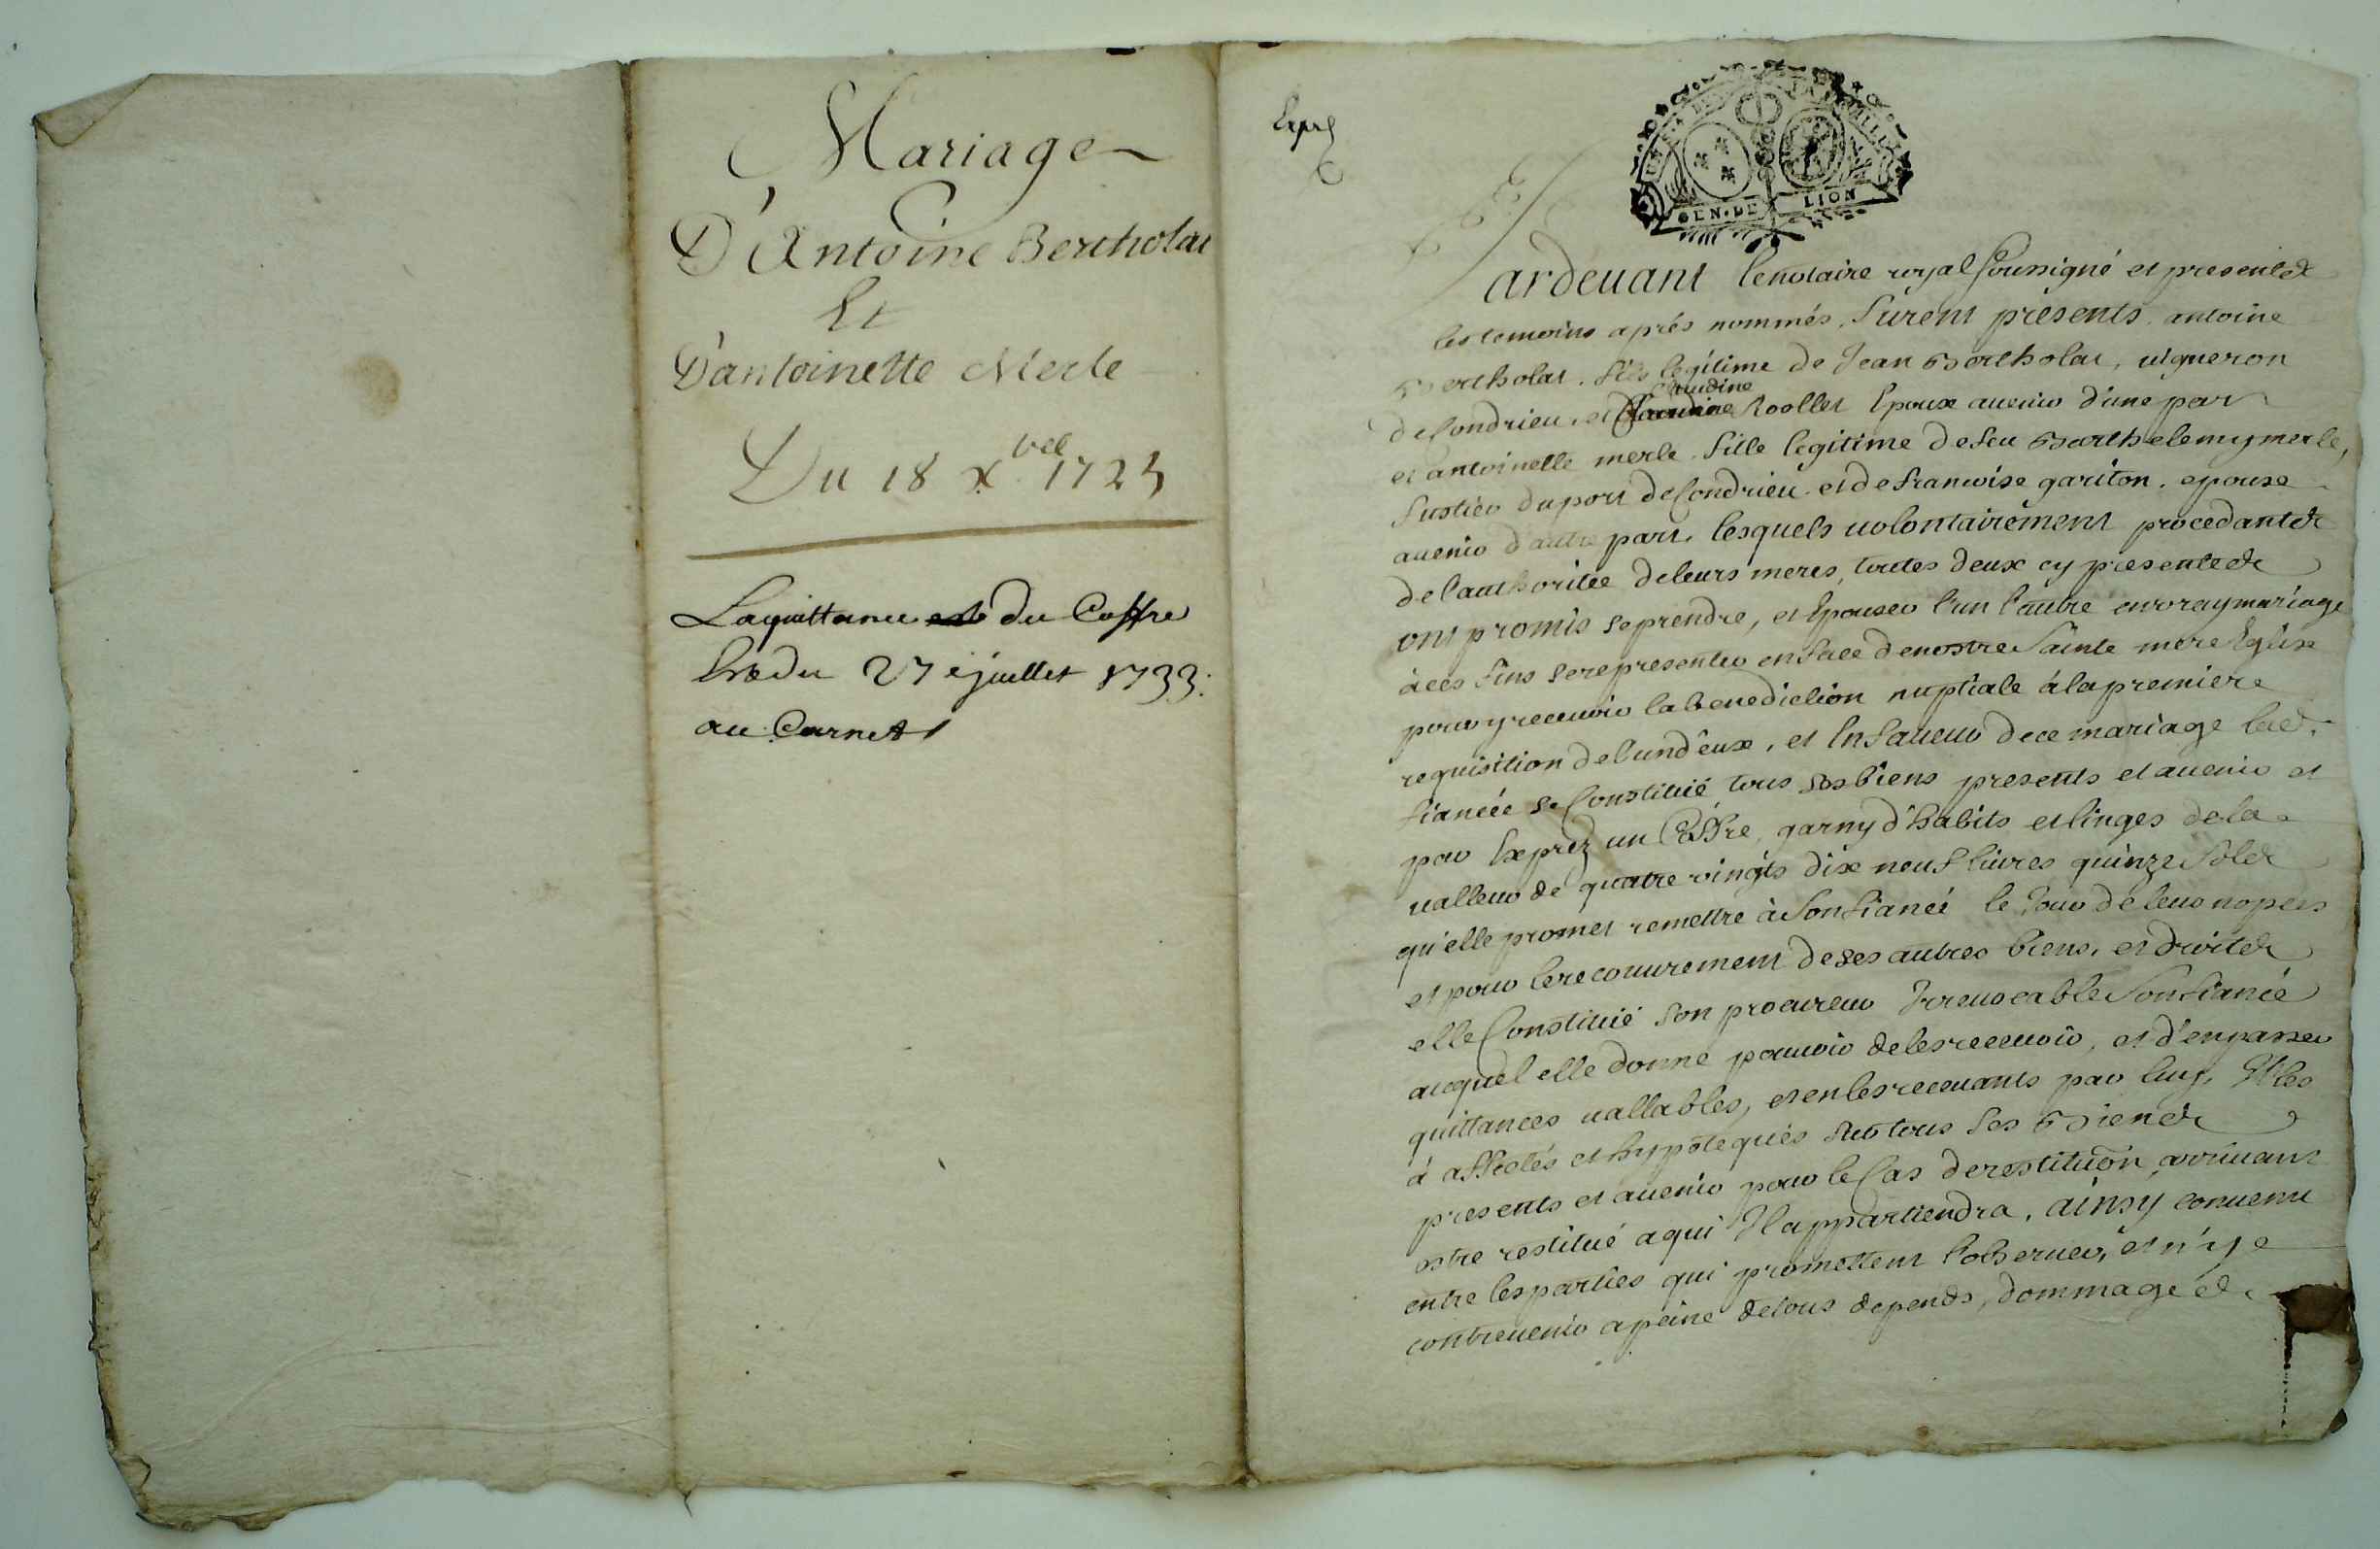 Mariage
D'Antoine Bertholat
Et
D'antoinette Merle
Du 18 Xbre 1725
La quittance est du Coffre
du 27e juillet 1733:
au Carnet
Exp
GEN. DE LION
Pardeuant le notaire royal soussigné et presents
les temoins aprés nommés, furent présents antoine
Bertholat, fils légitime de Jean Bertholat, uigneron
de Condrieu, et Claudine Claudine Roollet Epoux auenir d'une part
et antoinette merle, fille legitime de feu Barthelemy merle,
fustier du port de Condrieu et de francoise gariton, epouse
auenir d'autre part, lesquels uolontairement procedants
de l'authoritée de leurs meres, toutes deux cy presentes
ont promis se prendre, et Epouser l'un l'autre en vray mariage
à ces fins se representer en face de nostre Sainte mere Eglise
pour y receuoir la benediction nuptiale à la premiere
requisition de l'un d'eux, et En faueur de ce mariage lad.
fiancée se Constitüé tous ses biens presents et auenir et
par Exprez un Coffre, garny d'habits et linges de la
ualleur de quatre vingts dix neuf liures quinze sols
qu'elle promet remettre à son fiancé le Jour de leur nopces
et pour le recouurement de ses autres biens, et droits
elle Constitüé son procureur Irreuocable son fiancé
auquel elle donne pouuoir de les receuoir, et d'en passer
quittances uallables, et en les receuants par luy, Il les
à affectés et hypotequés sur tous ses Biens
presents et auenir pour le Cas de restitution arriuant
estre restitué a qui Il appartiendra, ainsy conuenu
entre les parties qui promettent l'obseruer, et n'y
contreuenir a peine de tous depends, dommage et